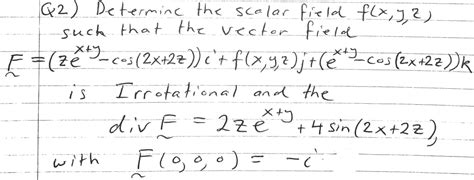 Q2) Determine the scalar field f(x,y,z)
such that the vector field
F = (ze^{x+y} - cos(2x+2z)) i + f(x,y,z) j + (e^{x+y} - cos(2x+2z)) k
is Irrotational and the
div F = 2ze^{x+y} + 4 sin(2x+2z),
with F(0,0,0) = -i